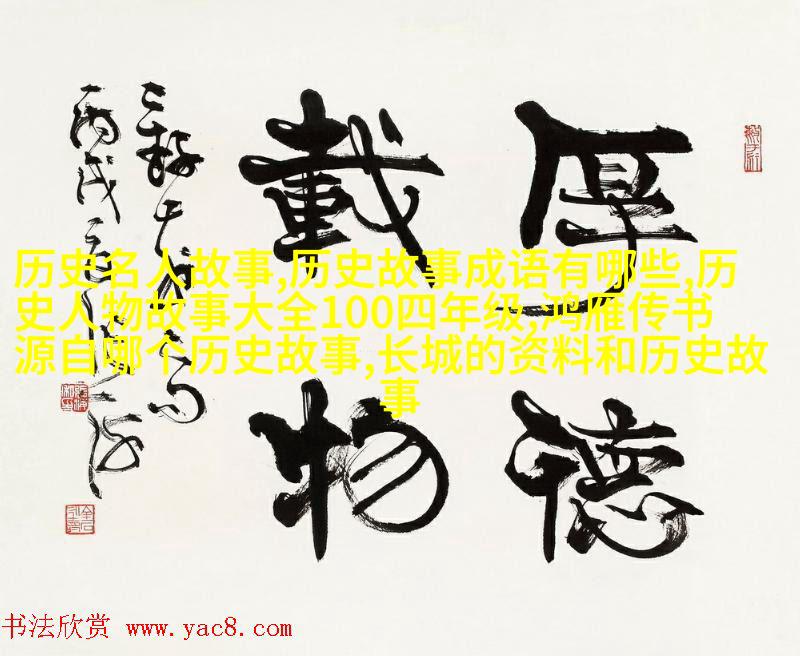 厚德
載物
丙戌
历史名人故事,历史故事成语有哪些,历
史人物故事大全100四年级,鸿雁传书
源自哪个历史故事,长城的资料和历史故
事
书法欣赏 www.yac8.com